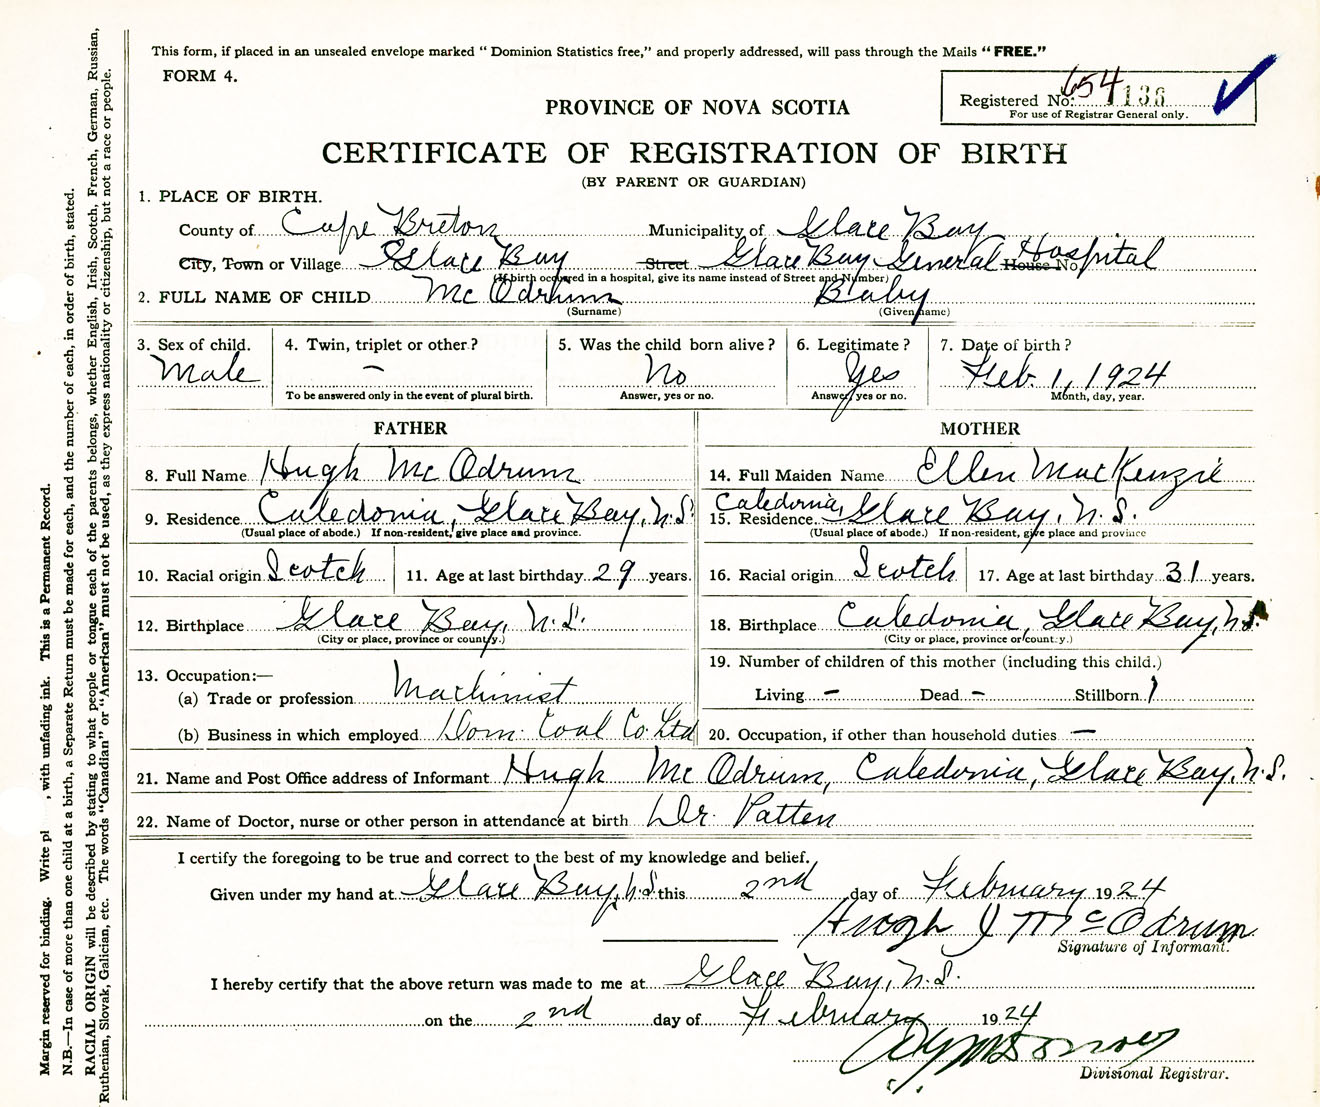 This form, if placed in an unsealed envelope marked “ Dominion Statistics free,” and properly addressed, will pass through the Mails “ FREE.”
FORM 4.
654
Registered No: 1136
For use of Registrar General only.
PROVINCE OF NOVA SCOTIA
CERTIFICATE OF REGISTRATION OF BIRTH
(BY PARENT OR GUARDIAN)
1. PLACE OF BIRTH.
County of Cape Breton Municipality of Glace Bay
City, Town or Village Glace Bay Street Glace Bay General Hospital House No
(If birth occurred in a hospital, give its name instead of Street and Number)
2. FULL NAME OF CHILD Mc Odrum Baby
(Surname) (Given name)
3. Sex of child. 4. Twin, triplet or other? 5. Was the child born alive? 6. Legitimate? 7. Date of birth?
Male – No Yes Feb. 1, 1924
To be answered only in the event of plural birth. Answer, yes or no. Answer, yes or no. Month, day, year.
FATHER MOTHER
8. Full Name Hugh Mc Odrum 14. Full Maiden Name Ellen MacKenzie
9. Residence Caledonia, Glace Bay, N.S. 15. Residence Caledonia, Glace Bay, N.S.
(Usual place of abode.) If non-resident, give place and province. (Usual place of abode.) If non-resident, give place and province
10. Racial origin Scotch 11. Age at last birthday 29 years. 16. Racial origin Scotch 17. Age at last birthday 31 years.
12. Birthplace Glace Bay, N.S. 18. Birthplace Caledonia, Glace Bay, N.S.
(City or place, province or county.) (City or place, province or county.)
13. Occupation:— 19. Number of children of this mother (including this child.)
(a) Trade or profession Machinist Living – Dead – Stillborn 1
(b) Business in which employed Dom. Coal Co. Ltd 20. Occupation, if other than household duties –
21. Name and Post Office address of Informant Hugh Mc Odrum, Caledonia, Glace Bay, N.S.
22. Name of Doctor, nurse or other person in attendance at birth Dr. Patten
I certify the foregoing to be true and correct to the best of my knowledge and belief.
Given under my hand at Glace Bay, N.S. this 2nd day of February 1924
Hugh J McOdrum
Signature of Informant.
I hereby certify that the above return was made to me at Glace Bay, N.S.
on the 2nd day of February 1924
Divisional Registrar.
Margin reserved for binding. Write pl , with unfading ink. This is a Permanent Record.
N.B.—In case of more than one child at a birth, a Separate Return must be made for each, and the number of each, in order of birth, stated.
RACIAL ORIGIN will be described by stating to what people or tongue each of the parents belongs, whether English, Irish, Scotch, French, German, Russian,
Ruthenian, Slovak, Galician, etc. The words “Canadian” or “American” must not be used, as they express nationality or citizenship, but not a race or people.